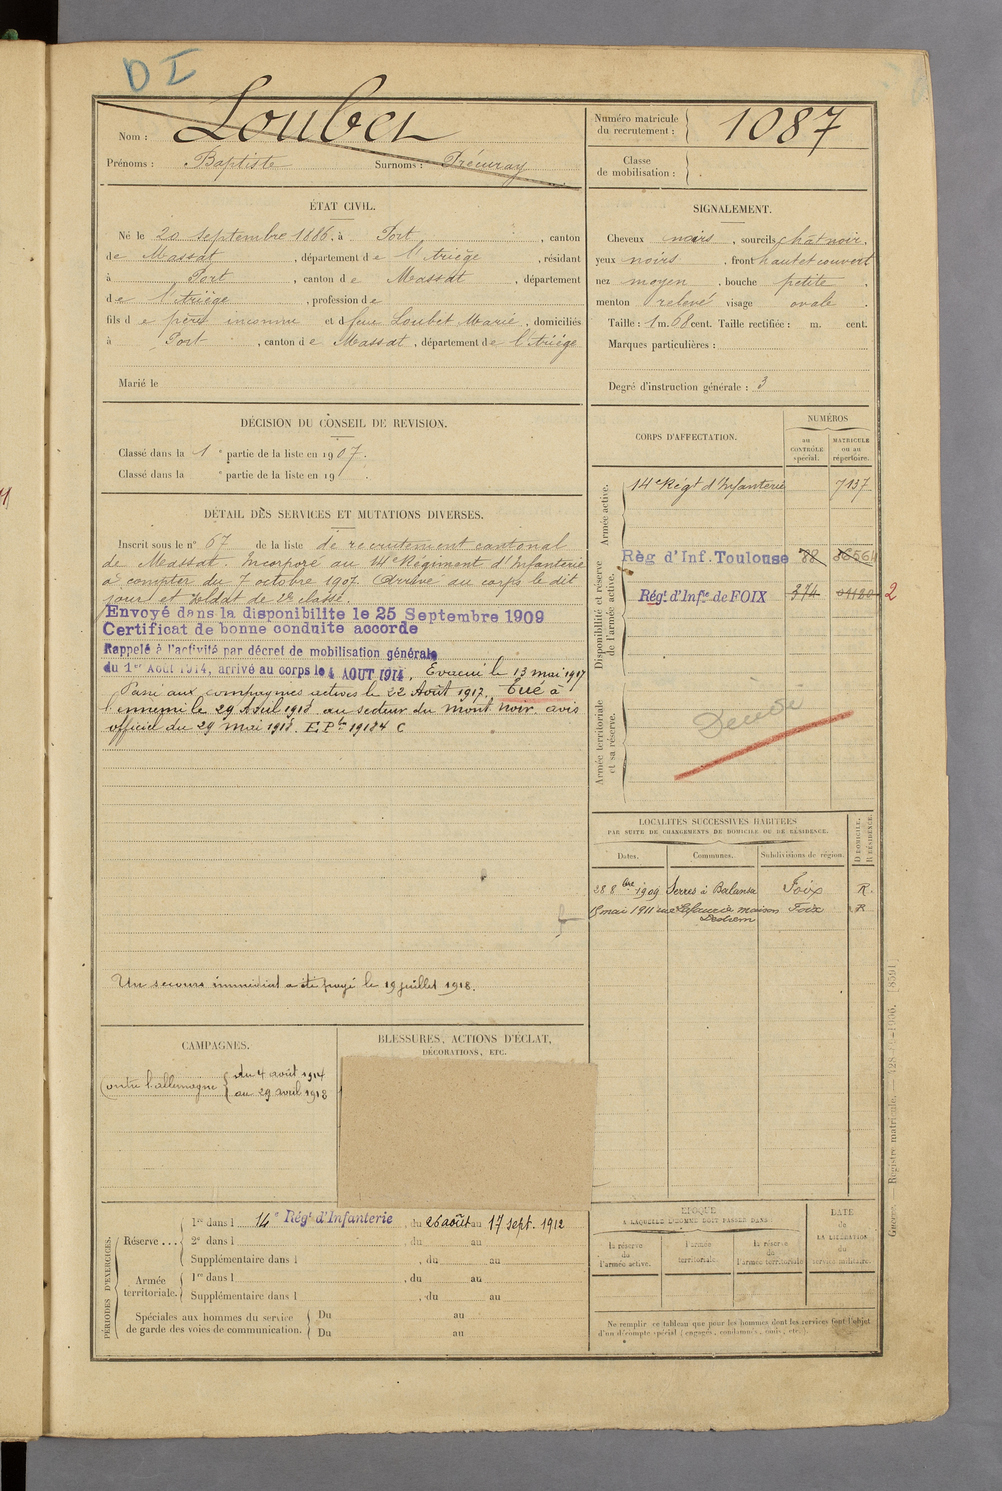 D I
Nom : Loubet
Prénoms : Baptiste Surnoms :
Numéro matricule
du recrutement : 1087
Classe
de mobilisation :
ÉTAT CIVIL.
Né le 20 septembre 1886, à Port, canton
de Massat, département de l'Ariège, résidant
à Port, canton de Massat, département
de l'Ariège, profession de
fils de père inconnu et d feue Loubet Marie, domiciliés
à Port, canton de Massat, département de l'Ariège
Marié le
SIGNALEMENT.
Cheveux noirs, sourcils chât noir,
yeux noirs, front haut et couvert
nez moyen, bouche petite,
menton relevé visage ovale.
Taille : 1 m. 68 cent. Taille rectifiée : m. cent.
Marques particulières :
Degré d'instruction générale : 3
DÉCISION DU CONSEIL DE REVISION.
Classé dans la 1e partie de la liste en 1907.
Classé dans la e partie de la liste en 19 .
DÉTAIL DES SERVICES ET MUTATIONS DIVERSES.
Inscrit sous le n° 67 de la liste de recrutement cantonal
de Massat. Incorporé au 14e Régiment d'Infanterie
à compter du 7 octobre 1907. Arrivé au corps le dit
jour et soldat de 2e classe.
Envoyé dans la disponibilite le 25 Septembre 1909
Certificat de bonne conduite accorde
Rappelé à l'activité par décret de mobilisation générale
du 1er Août 1914, arrivé au corps le 4 AOUT 1914, Evacué le 13 mai 1917
Passé aux compagnies actives le 22 Août 1917. Tué à
l'ennemi le 29 Avril 1918 au secteur du Mont Noir avis
officiel du 29 mai 1918. E Pr 19184 C
Un secours immédiat a été payé le 19 juillet 1918.
CORPS D'AFFECTATION.
NUMÉROS
au
CONTRÔLE
spécial.
MATRICULE
ou au
répertoire.
Armée active.
14e Régt d'Infanterie 7137
Disponibilité et réserve
de l'armée active.
Règ d'Inf. Toulouse 88
Régt d'Infie de FOIX 374 2
Armée territoriale
et sa réserve.
LOCALITÉS SUCCESSIVES HABITÉES
PAR SUITE DE CHANGEMENTS DE DOMICILE OU DE RÉSIDENCE.
Dates. Communes. Subdivisions de région. D DOMICILE. R RÉSIDENCE.
28 8bre 1909 Serres à Balansa Foix R.
15 mai 1911 maison Foix R
CAMPAGNES.
Contre l'allemagne du 4 août 1914
au 29 avril 1918
BLESSURES, ACTIONS D'ÉCLAT,
DÉCORATIONS, ETC.
PÉRIODES D'EXERCICES.
Réserve ...
1re dans l 14e Régt d'Infanterie du 26 août au 17 sept. 1912
2e dans l , du au
Supplémentaire dans l , du au
Armée
territoriale.
1re dans l , du au
Supplémentaire dans l , du au
Spéciales aux hommes du service
de garde des voies de communication.
Du au
Du au
ÉPOQUE
À LAQUELLE L'HOMME DOIT PASSER DANS
la réserve
de
l'armée active.
l'armée
territoriale.
la réserve
de
l'armée territoriale
DATE
de
LA LIBÉRATION
du
service militaire.
Ne remplir ce tableau que pour les hommes dont les services font l'objet
d'un décompte spécial (engagés, condamnés, omis, etc.).